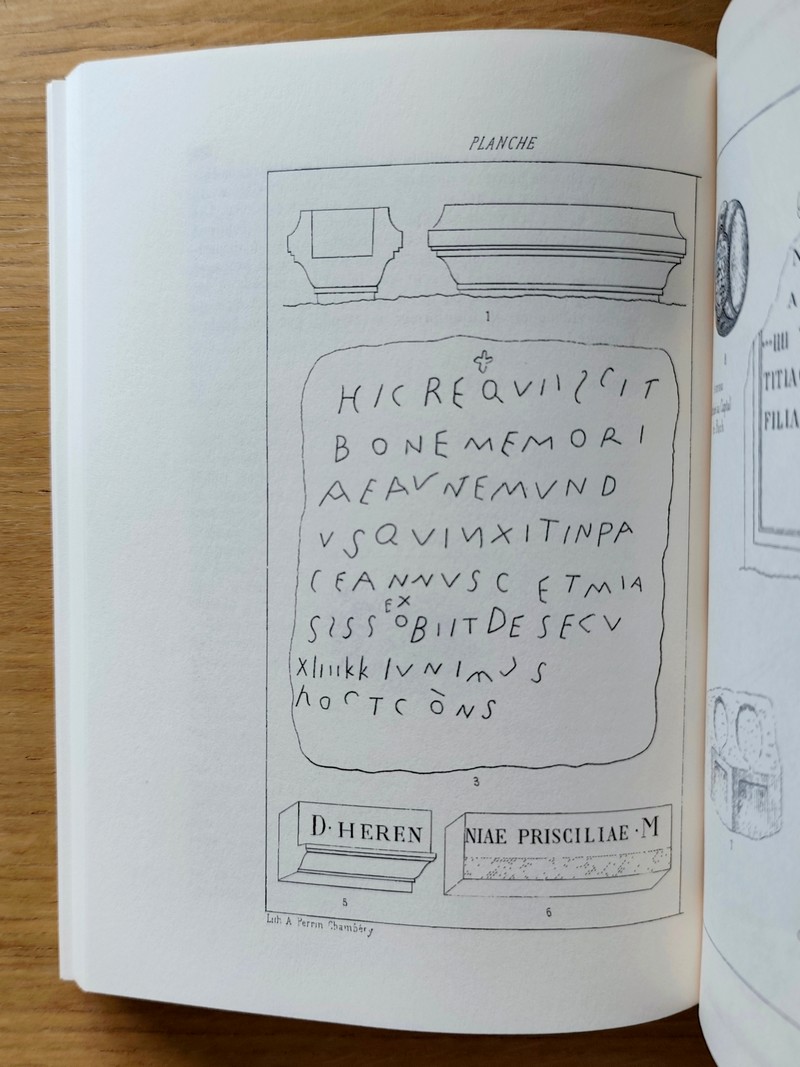 PLANCHE
1
HIC REQVIISCIT
BONEMEMORI
AEAVNEMVND
VSQVIVIXITINPA
CEANNVSC ETMIA
EX
SISS OBIITDESECV
XIIIIKK IVNIMVS
hOCTCONS
3
D·HEREN
NIAE PRISCILIAE·M
5
6
Lith A Perrin Chambéry
A
TITIA
FILIA